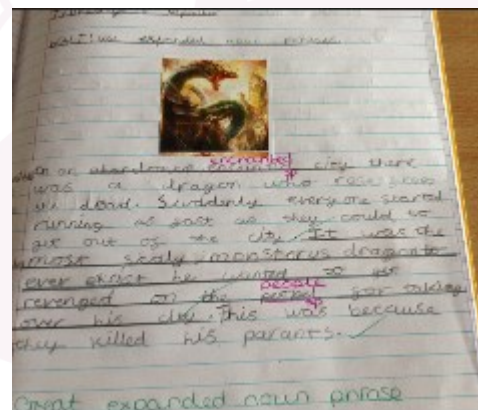 use expanded noun phrases
enchanted
In an abandoned city there
was a dragon who rose from
the dead. Suddenly everyone started
running as fast as they could to
get out of the city. It was the
most scaly monsterus dragon to
ever exist he wanted to get
people
revenged on the for taking
over his city. This was because
they killed his parants.
Great expanded noun phrase